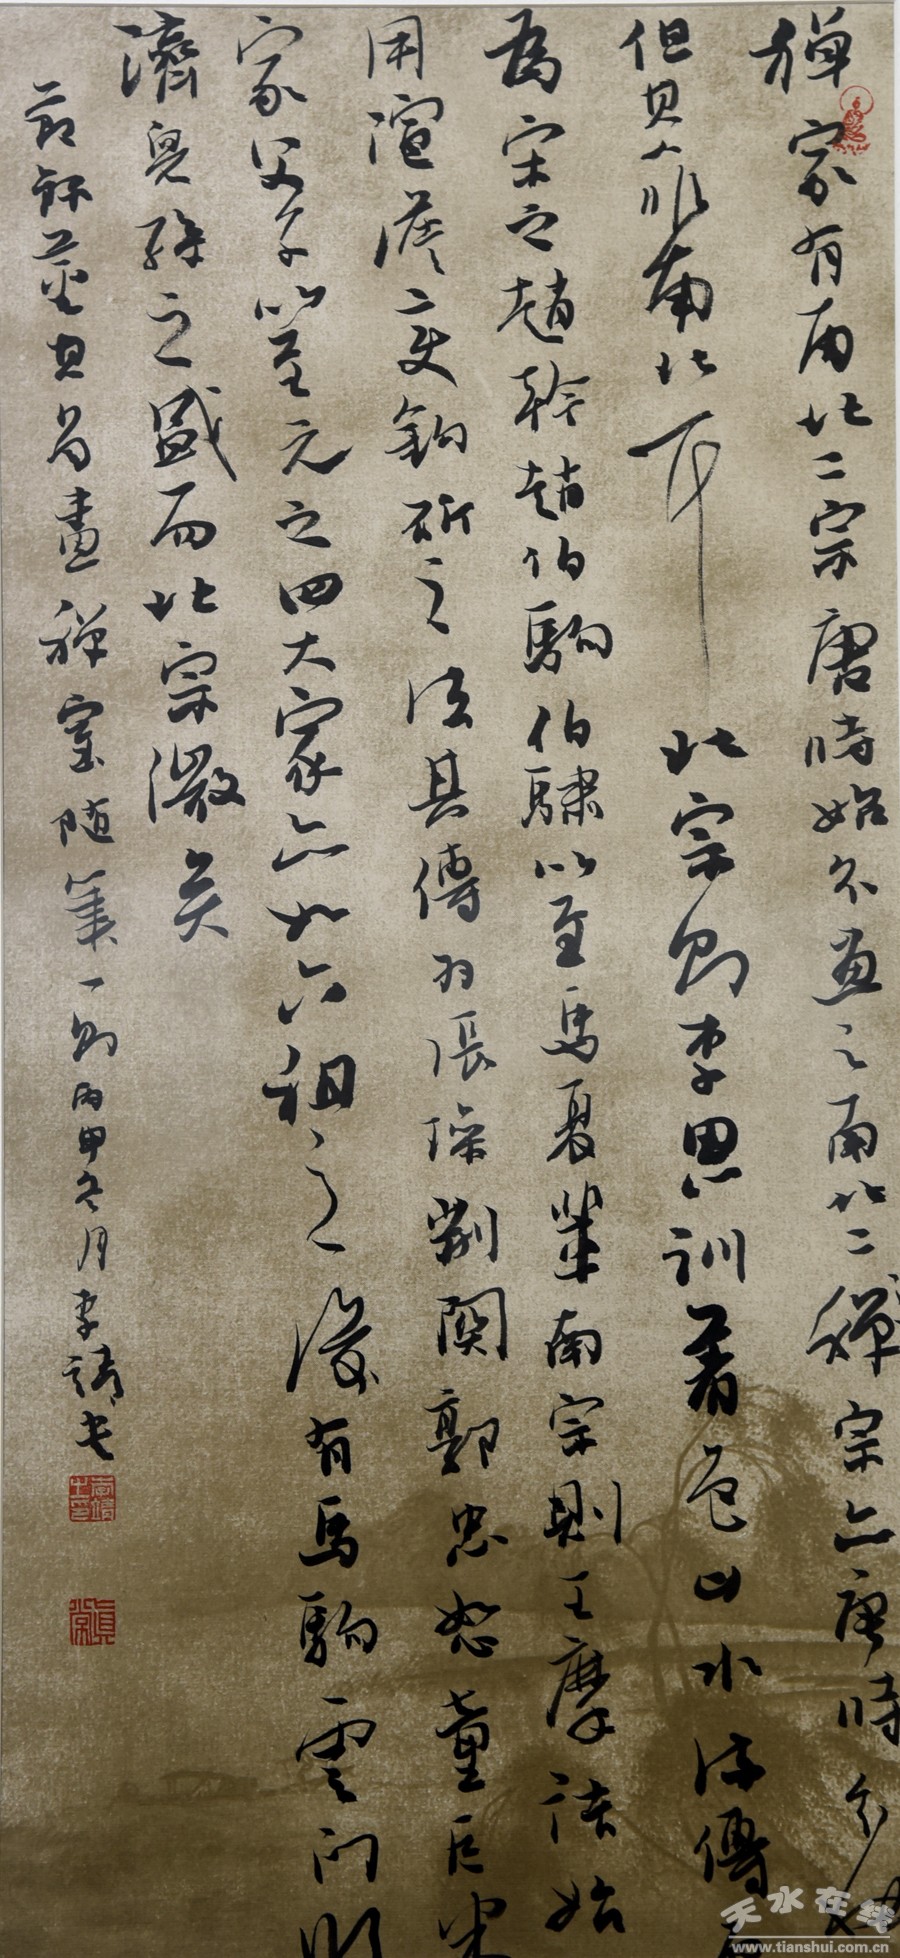 禪家有南北二宗唐時始分畫之南北二禪宗亦唐時分
但其人非南北耳北宗則李思訓着色山水流傳
為宋之趙幹趙伯駒伯驌以至馬夏輩南宗則王摩詰始
用渲淡一變鈎斫之法其傳為張璪荆關郭忠恕董巨米
家父子以至元之四大家亦如六祖之後有馬駒雲門臨
濟兒孫之盛而北宗微矣
節錄董其昌畫禪室隨筆一則丙申冬月李靖書
天水在线
www.tianshui.com.cn